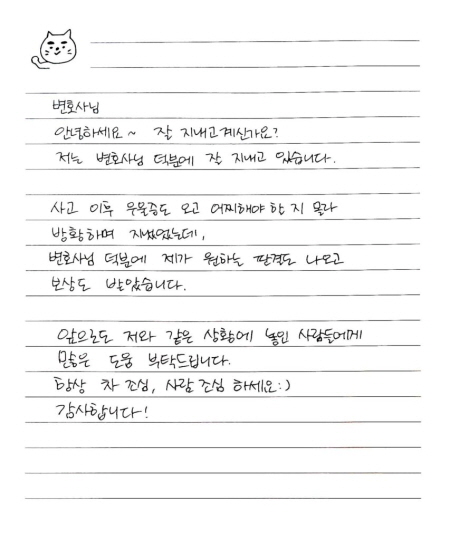 변호사님
안녕하세요~ 잘 지내고계신가요?
저는 변호사님 덕분에 잘 지내고 있습니다.
사고 이후 우울증도 오고 어찌해야 할 지 몰라
방황하며 지냈었는데,
변호사님 덕분에 제가 원하는 판결도 나오고
보상도 받았습니다.
앞으로도 저와 같은 상황에 놓인 사람들에게
많은 도움 부탁드립니다.
항상 차 조심, 사람 조심 하세요:)
감사합니다!